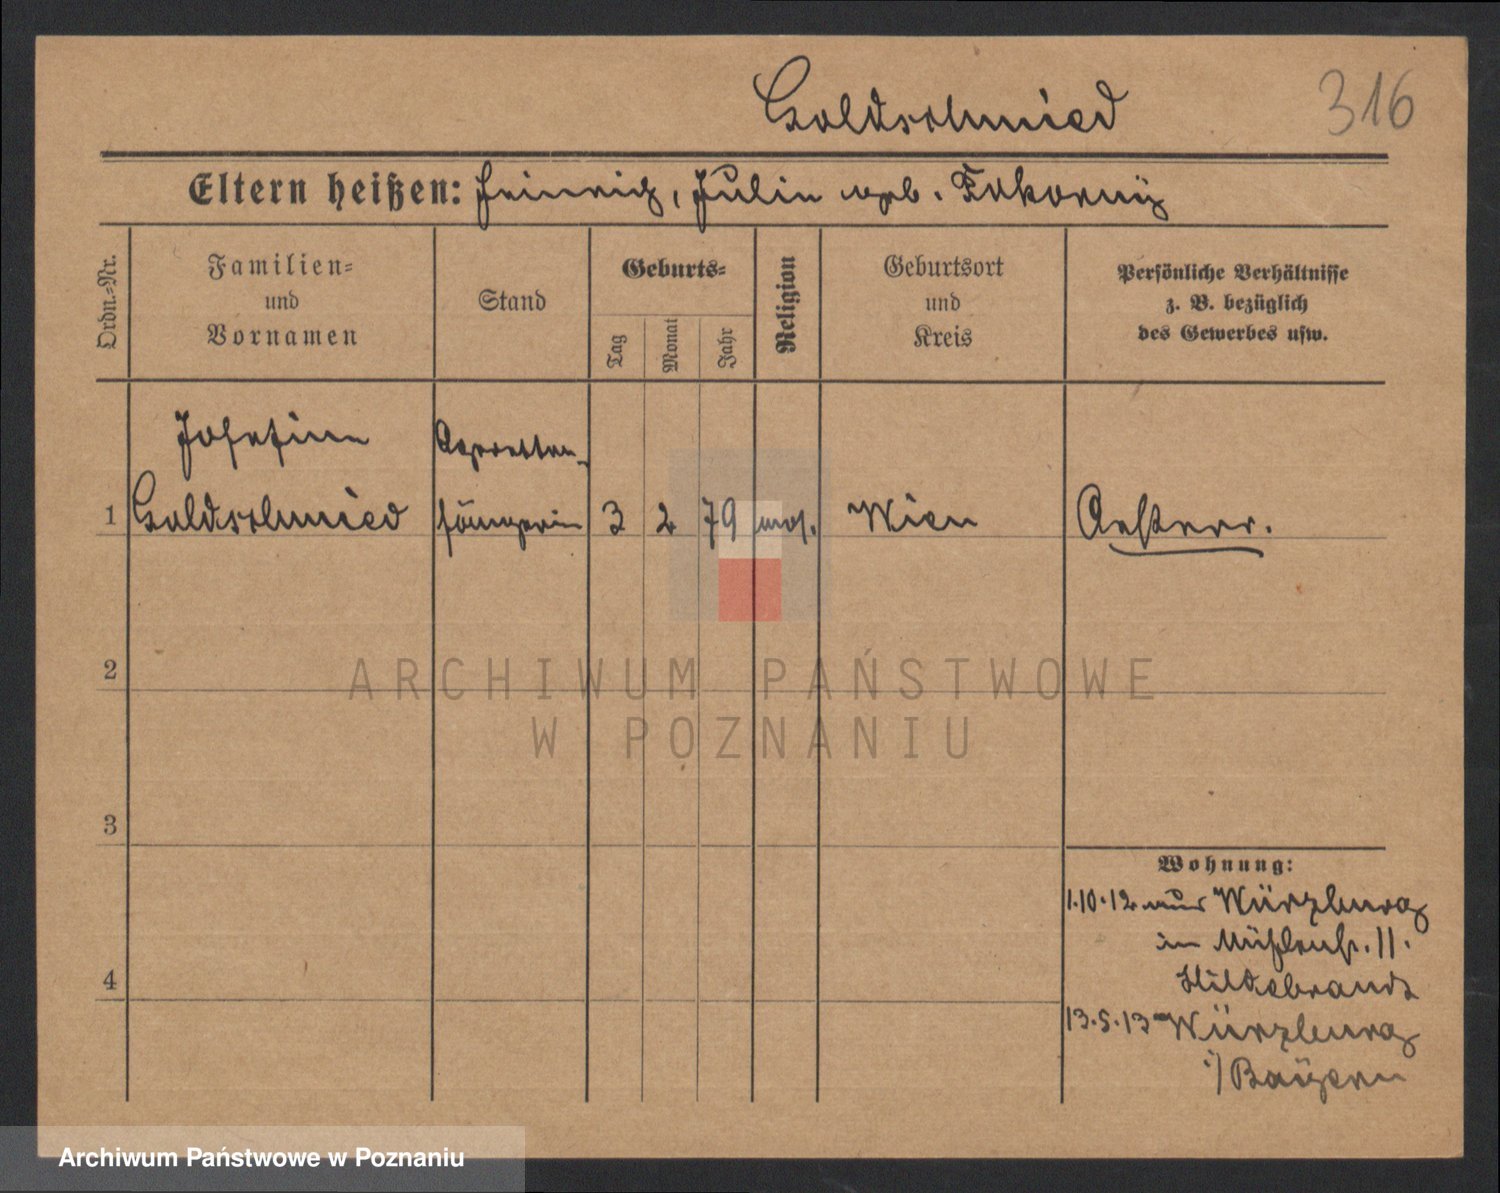 Goldschmied
316
Eltern heißen: Heinrich, Julie geb. Pokorny
Ordn.-Nr.
Familien-
und
Vornamen
Stand
Geburts-
Tag
Monat
Jahr
Religion
Geburtsort
und
Kreis
Persönliche Verhältnisse
z. B. bezüglich
des Gewerbes usw.
Josefine
Goldschmied
Operetten-
sängerin
1
3
2
79
mos.
Wien
Oesterr.
2
ARCHIWUM PAŃSTWOWE
W POZNANIU
3
Wohnung:
1.10.12 aus Würzburg
in Mühlenstr. 11.
Hildebrandt
4
13.5.13 Würzburg
i/ Bayern
Archiwum Państwowe w Poznaniu